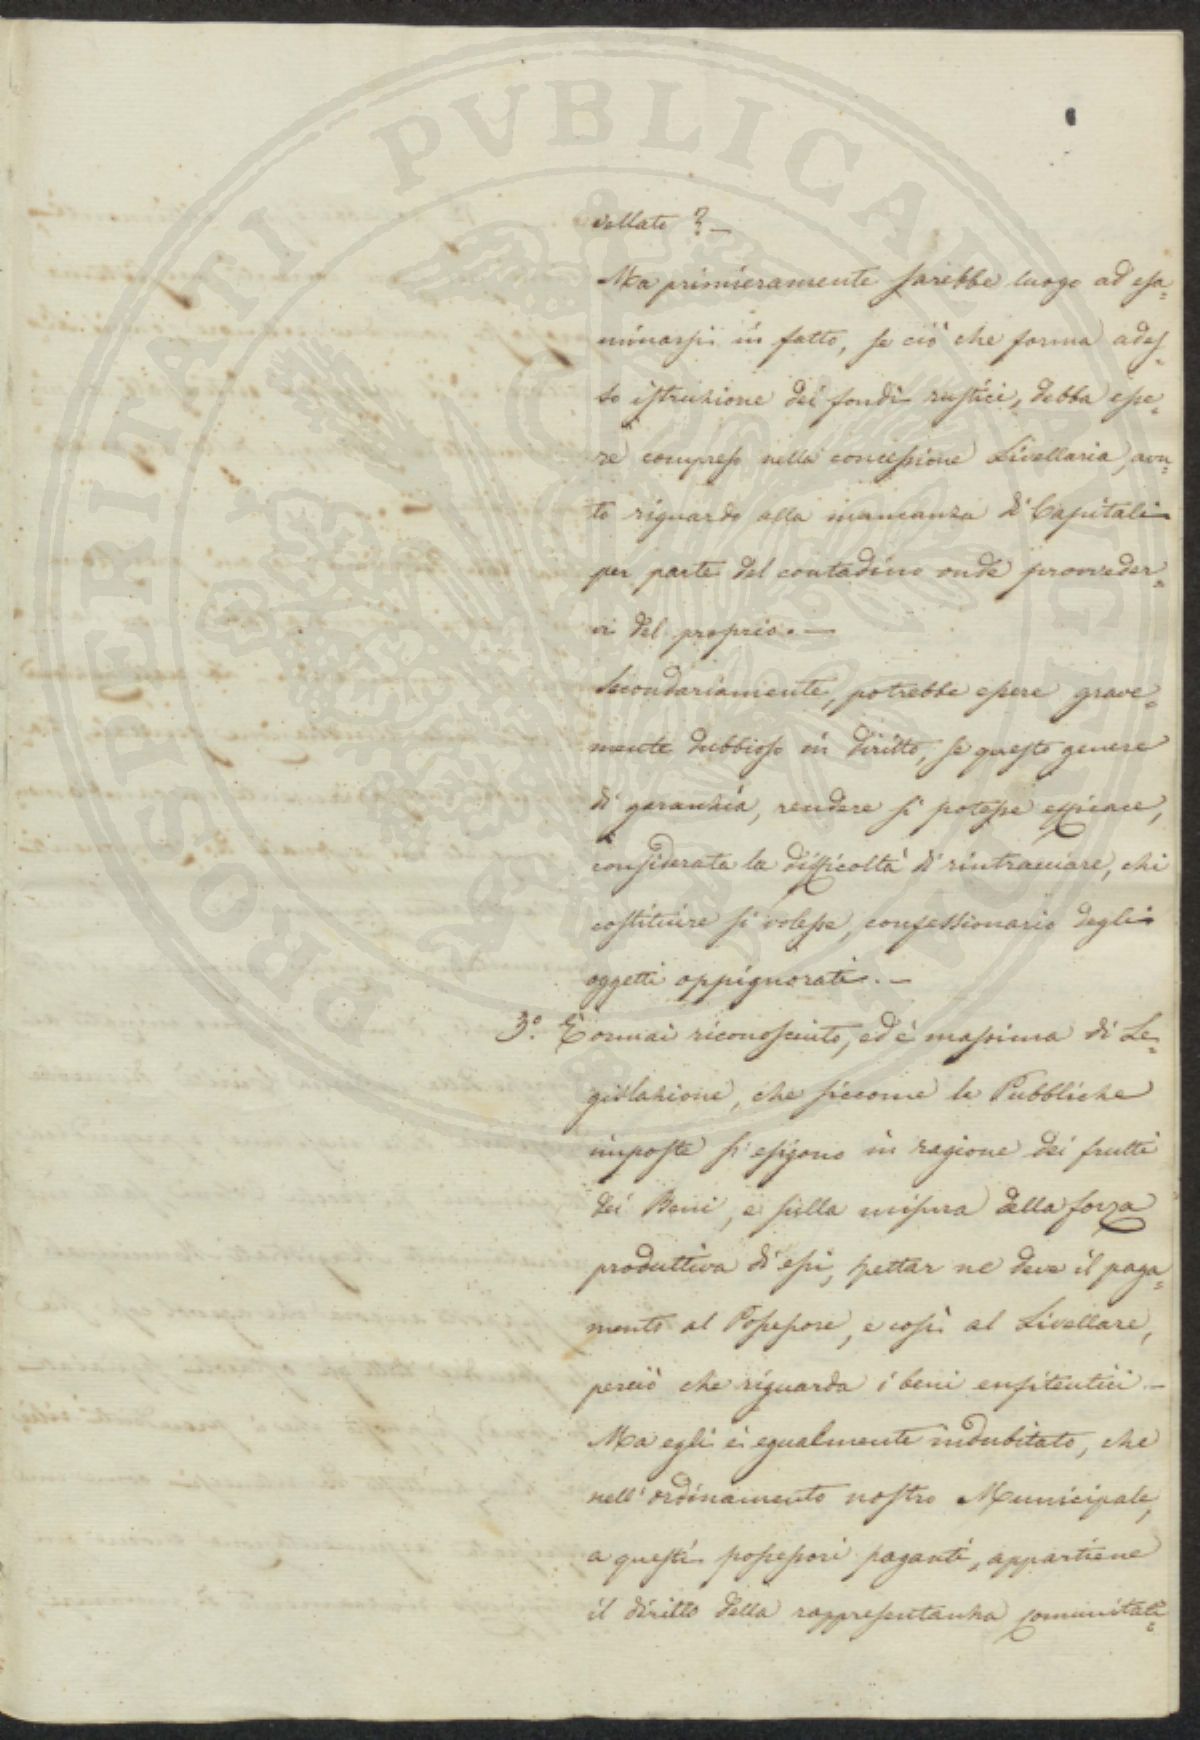 vellato? —
Ma primieramente sarebbe luogo ad esa=
minarsi in fatto, se ciò che forma ades=
so istruzione dei fondi rustici, debba esse=
re compreso nella concessione Livellaria, avu=
to riguardo alla mancanza di Capitali
per parte del contadino onde provveder=
vi del proprio. —
Secondariamente, potrebbe essere grave=
mente dubbioso in diritto, se questo genere
di garanzia, rendere si potesse efficace,
considerata la difficoltà di rintracciare, chi
costituire si volesse, confessionario degli
oggetti oppignorati. —
3°. È ormai riconosciuto, ed è massima di Le=
gislazione, che siccome le Pubbliche
imposte si esigono in ragione dei frutti
dei Beni, e sulla misura della forza
produttiva di essi, spettar ne deve il paga=
mento al Possessore, e così al Livellare,
perciò che riguarda i beni enfiteutici —
Ma egli è egualmente indubitato, che
nell'ordinamento nostro Municipale,
a questi possessori paganti, appartiene
il diritto della rappresentanza comunitati=
PROSPERITATI PVBLICAE